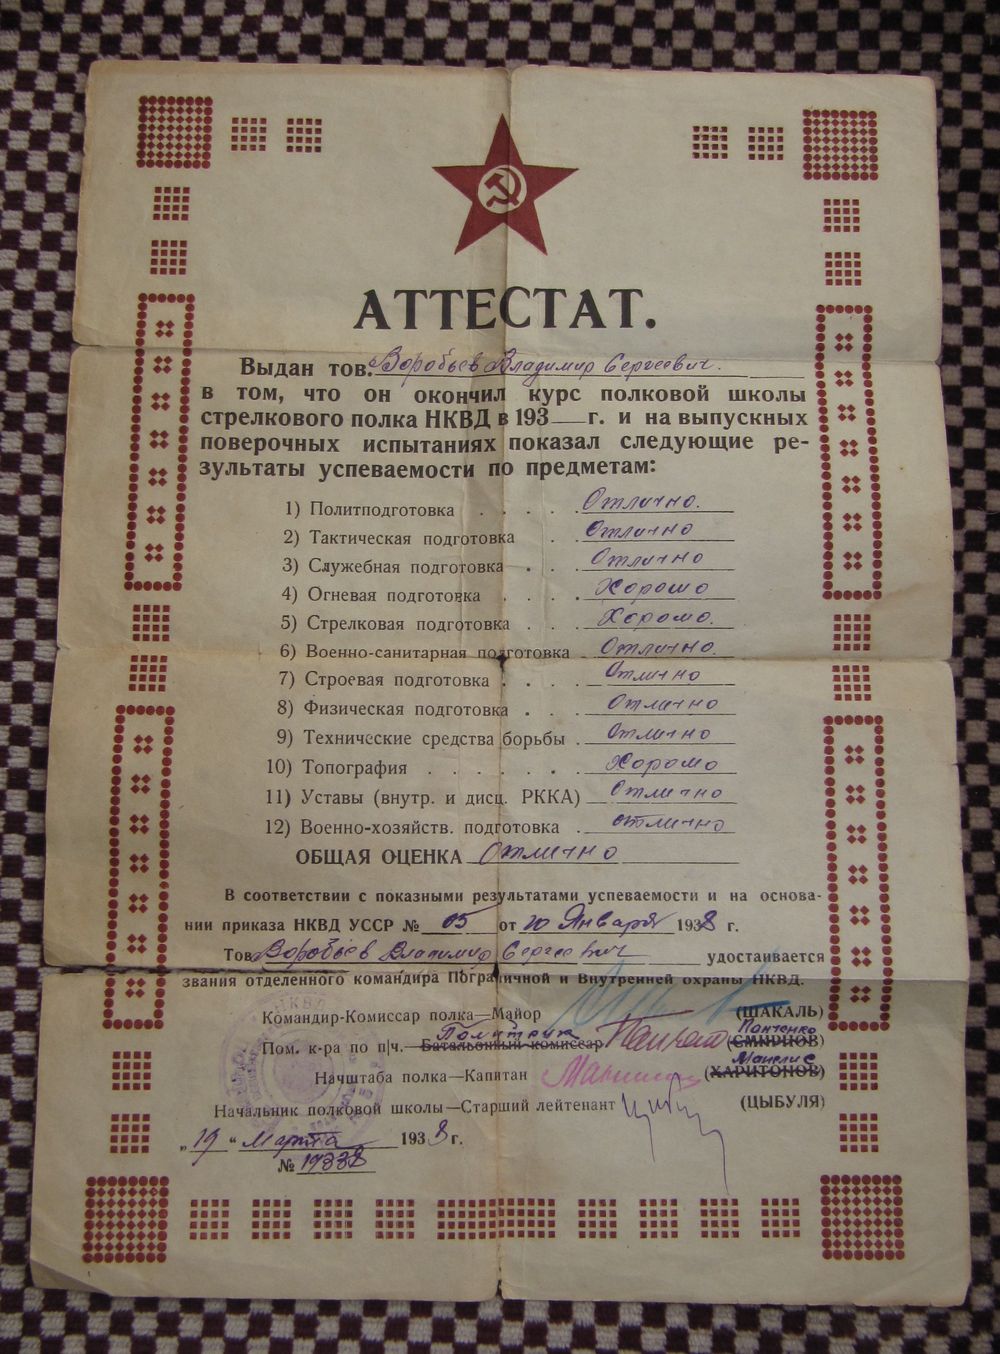 АТТЕСТАТ.
Выдан тов. Воробьев Владимир Сергеевич.
в том, что он окончил курс полковой школы
стрелкового полка НКВД в 193 г. и на выпускных
поверочных испытаниях показал следующие ре-
зультаты успеваемости по предметам:
1) Политподготовка . . . . Отлично.
2) Тактическая подготовка . . Отлично
3) Служебная подготовка . . Отлично
4) Огневая подготовка . . . . Хорошо
5) Стрелковая подготовка . . . Хорошо.
6) Военно-санитарная подготовка Отлично.
7) Строевая подготовка . . . . Отлично
8) Физическая подготовка . . . Отлично
9) Технические средства борьбы . Отлично
10) Топография . . . . . . . Хорошо
11) Уставы (внутр. и дисц. РККА) Отлично
12) Военно-хозяйств. подготовка . отлично
ОБЩАЯ ОЦЕНКА Отлично
В соответствии с показными результатами успеваемости и на основа-
нии приказа НКВД УССР № 05 от 20 Января 1938 г.
Тов. Воробьев Владимир Сергеевич удостаивается
звания отделенного командира Пограничной и Внутренней охраны НКВД.
Командир-Комиссар полка—Майор (ШАКАЛЬ)
Политрук Панченко
Пом. к-ра по п|ч.—Батальонный комиссар (СМИРНОВ)
Манелис
Начштаба полка—Капитан (ХАРИТОНОВ)
Начальник полковой школы—Старший лейтенант (ЦЫБУЛЯ)
„19" Марта 1938 г.
№ 19338
НКВД